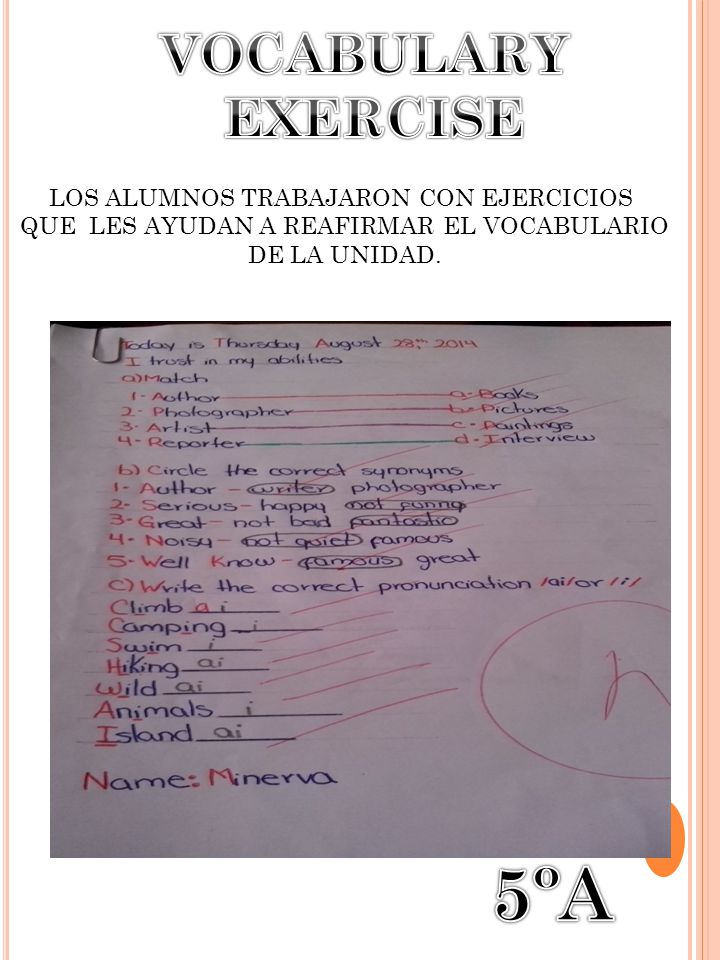 VOCABULARY
EXERCISE
LOS ALUMNOS TRABAJARON CON EJERCICIOS
QUE LES AYUDAN A REAFIRMAR EL VOCABULARIO
DE LA UNIDAD.
Today is Thursday August 28th, 2014
I trust in my abilities
a) Match
1- Author a- Books
2- Photographer b- Pictures
3- Artist c- Paintings
4- Reporter d- Interview
b) Circle the correct synonyms
1- Author - writer photographer
2- Serious - happy not funny
3- Great - not bad fantastic
4- Noisy - not quiet famous
5- Well Know - famous great
c) Write the correct pronunciation /ai/ or /i/
Climb ai
Camping i
Swim i
Hiking ai
Wild ai
Animals i
Island ai
Name: Minerva
5ºA